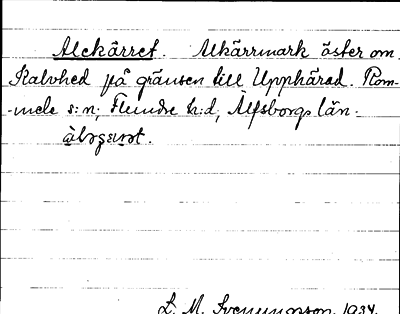 Alekärret. Alkärrmark öster om
Kalvhed på gränsen till Upphärad. Rom-
-mele s:n; Flundre h:d, Älfsborgs län.
L. M. Svenungsson. 1934.